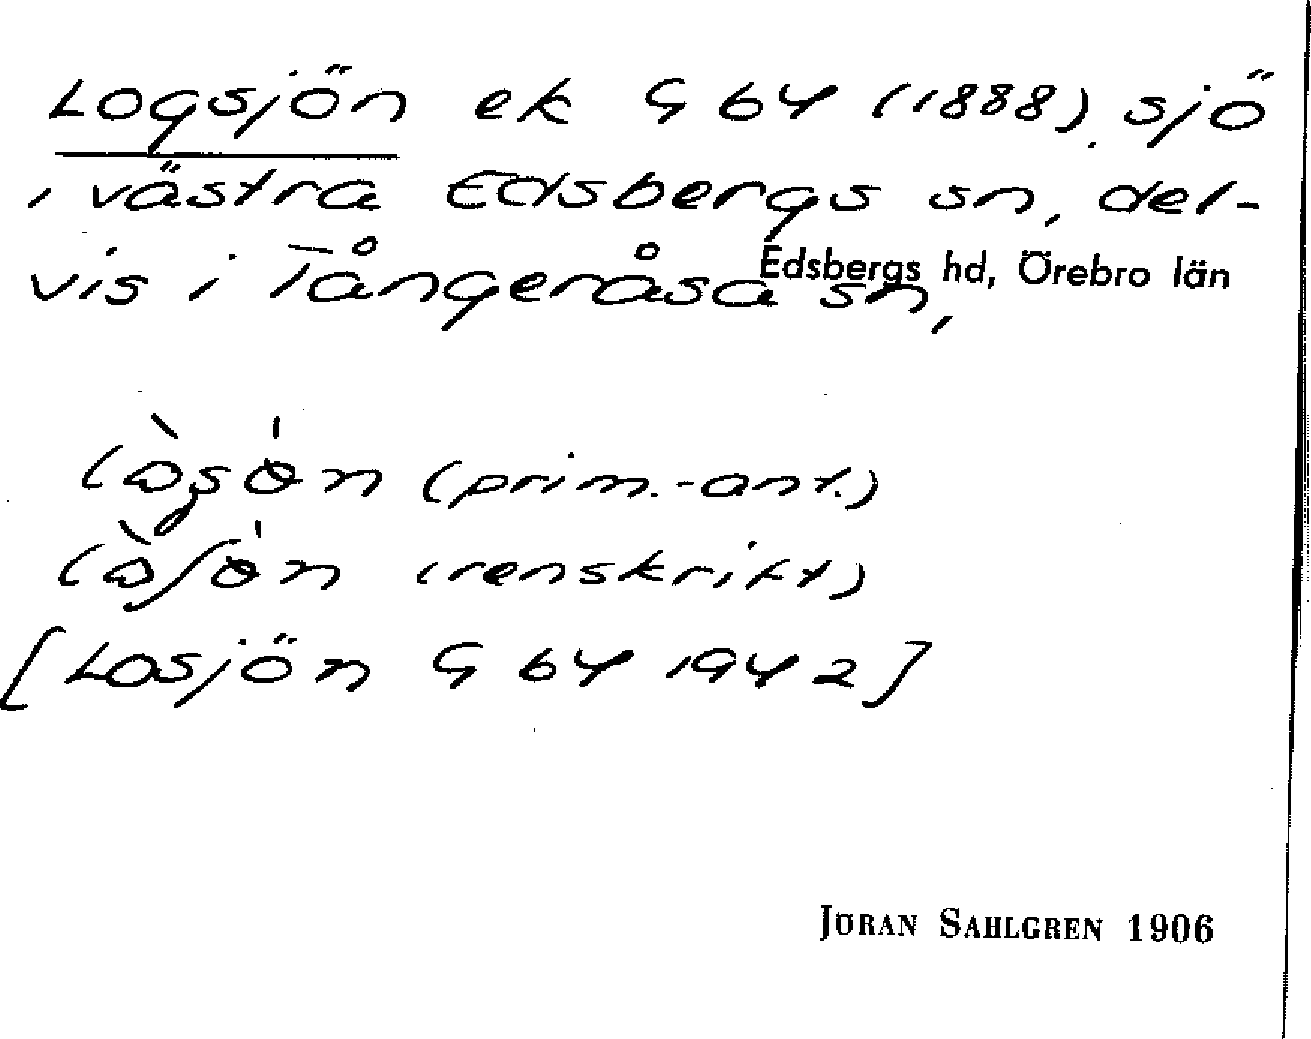 Logsjön ek G 64 (1888). sjö
i västra Edsbergs sn, del-
vis i Tångeråsa sn,
Edsbergs hd, Örebro län
(prim.-ant.)
(renskrift)
[Losjön G 64 1942]
JÖRAN SAHLGREN 1906